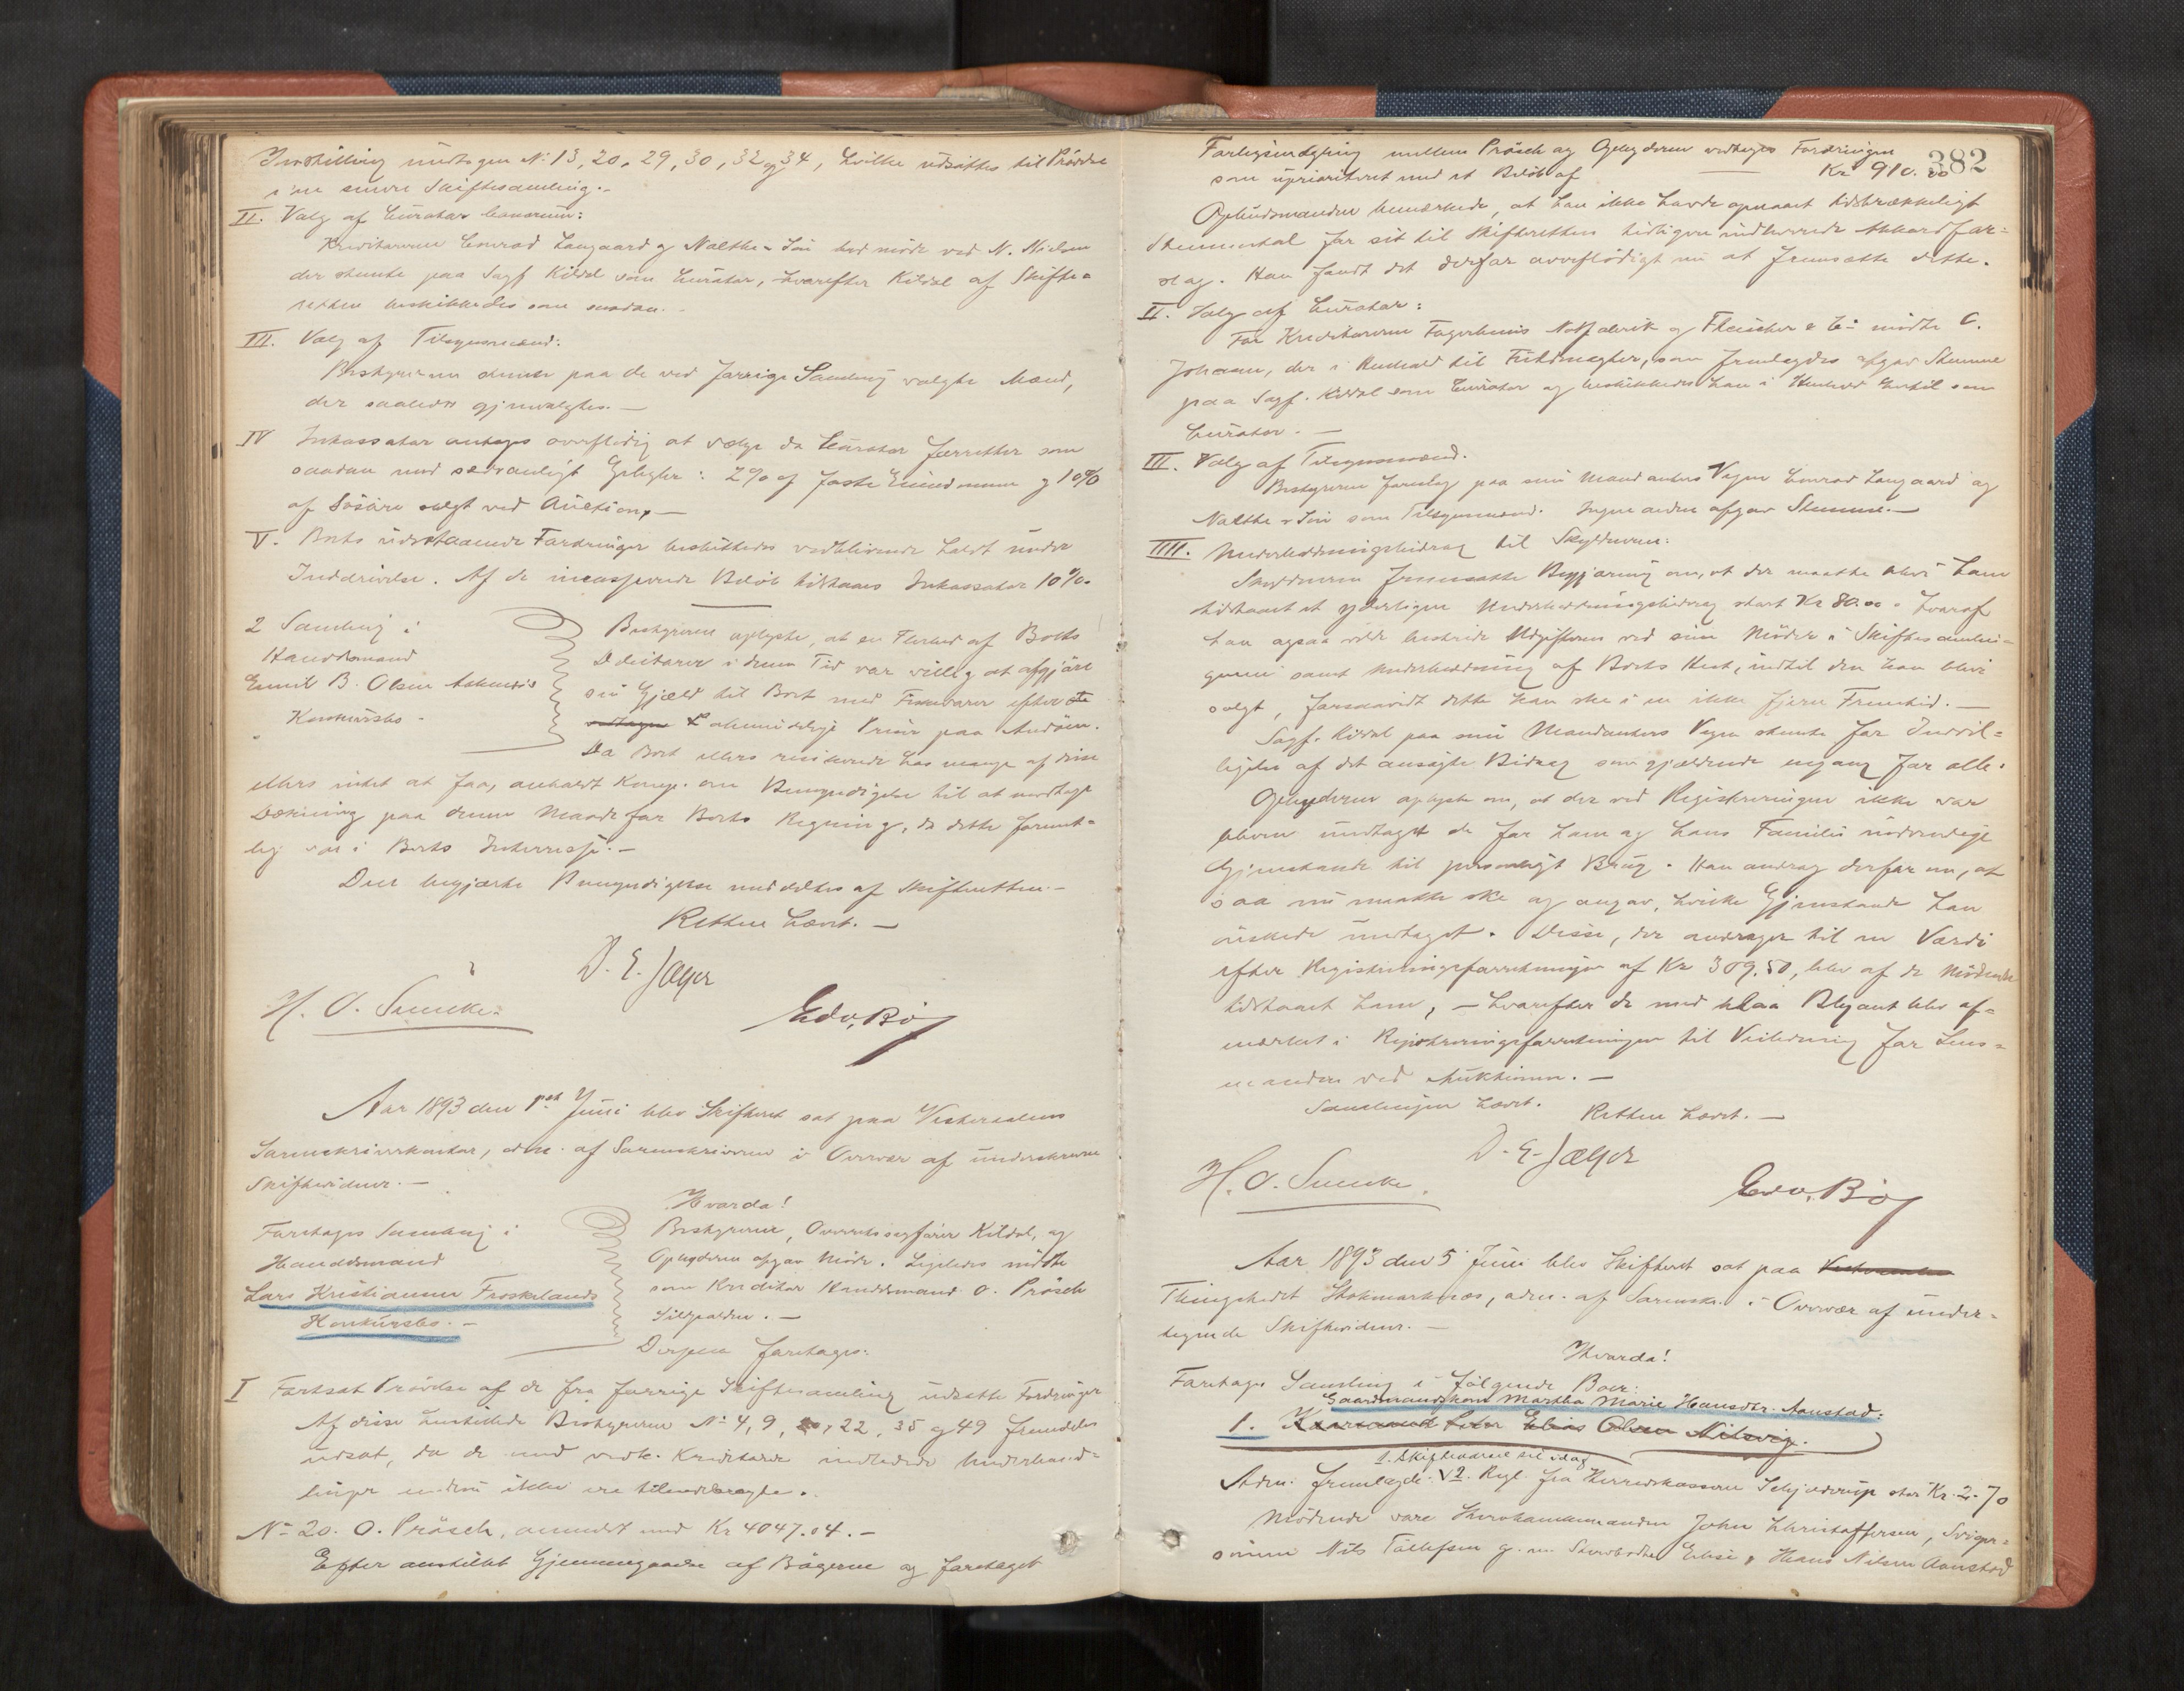 Indstilling undtagen No 13, 20, 29, 30, 32 og 34, hvilke udsattes til Prövelse
i en senere Skiftesamling.-
II. Valg af Curator bonorum:
Kreditorerne Conrad Langaard og Nalthe & Sön lod möde ved N. Nielsen
der stemte paa Sagf Kildal som Curator, hvorefter Kildal af Skifte-
retten beskikkedes som saadan.-
III. Valg af Tilsynsmænd:
Bestyreren stemte paa de ved forrige Samling valgte Mænd,
der saaledes gjenvalgtes.-
IV Inkassator antoges overflödig at vælge da Curator forretter som
saadan mod sædvanligt Gebyhr: 2% af faste Eiendomme og 10%
af Lösöre solgt ved Auction.-
V. Boets udestaaende Fordringer besluttedes vedblivende holdt under
Inddrivelse. Af de incasserede Belöb tilstaaes Inkassator 10%.
2 Samling i
Handelsmand
Emil B. Olsen
Konkursbo.-
Bestyreren oplyste, at en Flerhed af Boets
Debitorer i denne Tid var villig at afgjöre
sin Gjæld til Boet med Fiskevarer efter de
almindelige Priser paa Andöen.
Da Boet ellers risikerede hos mange af disse
ellers intet at faa, anholdt Komp. om Bemyndigelse til at modtage
Dækning paa denne Maade for Boets Regning, da dette forment-
lig var i Boets Interesse.-
Den begjærte Bemyndigelse meddeltes af Skifteretten.-
Retten hævet.-
D. E. Jæger
H. O. Suncke
Edv. Böj
Aar 1893 den 1ste Juni blev Skifteret sat paa Vesteraalens
Sorenskriverkontor, adm. af Sorenskriveren i Overvær af underskrevne
Skiftevidner.-
Hvorda!
Foretages Samling i
Handelsmand
Lars Kristiansen Froskelands
Konkursbo.-
Bestyreren, Overretssagförer Kildal, og
Opbyderen afgav Möde. Ligeledes mödte
som Kreditor Handelsmand O. Prösch
Derpaa foretages:
I Fortsat Prövelse af de fra forrige Skiftesamling udsatte Fordringer
Af disse indstillede Bestyreren No 4, 9, 22, 35 og 49 fremdeles
udsat, da de med vedk. Kreditorer indledede Underhand-
linger endnu ikke ere tilendebragte.
No 20. O. Prösch, anmeldt med Kr 4047.04.-
Efter anstillet Gjennemgaaelse af Bögerne og foretaget
382
Forligsmægling mellem Prösch og Opbyderen vedtoges Fordringen
som uprioriteret med et Belöb af Kr 910.00
Opbudsmanden bemærkede, at han ikke havde opnaaet tilstrækkeligt
Stemmetal for sit til Skifteretten tidligere indleverede Akkordfor-
slag. Han fandt det derfor overflödigt nu at fremsætte dette.
II. Valg af Curator:
For Kreditorerne Fagerheims Notfabrik og Fleischer & Co mödte C.
Johansen, der i Henhold til Fuldmagter, som fremlagdes afgav Stemme
paa Sagf. Kildal som Curator og beskikkedes han i Henhold hertil som
Curator.-
III. Valg af Tilsynsmænd.
Bestyreren foreslog paa sine Mandanters Vegne Conrad Langaard og
Nalthe & Sön som Tilsynsmænd. Ingen anden afgav Stemme.-
IIII. Underholdningsbidrag til Skyldneren:
Skyldneren fremsatte Begjæring om, at der maatte blive ham
tilstaaet et yderligere Underholdningsbidrag stort Kr 80.00. hvoraf
han ogsaa vilde bestride Udgifterne ved sine Möder i Skiftesamlin-
gerne samt Underholdning af Boets Hest, indtil den kan blive
solgt, forsaavidt dette kan ske i en ikke fjern Fremtid.-
Sagf. Kildal paa sine Mandanters Vegne stemte for Indvil-
ligelse af det ansögte Bidrag som gjældende engang for alle.
Opbyderen oplyste om, at der ved Registreringen ikke var
bleven undtaget de for ham og hans Familie nödvendige
Gjenstande til personligt Brug. Han androg derfor om, at
saa nu maatte ske og angav, hvilke Gjenstande han
önskede undtaget. Disse, der andrager til en Værdi
efter Registreringsforretningen af Kr 309.50, blev af de Mödende
tilstaaet ham, - hvorefter de med blaa Blyant blev af-
mærket i Registreringsforretningen til Veiledning for Lens-
manden ved Auktionen.-
Samlingen hævet. Retten hævet.-
D. E. Jæger
H. O. Suncke
Edv. Böj
Aar 1893 den 5 Juni blev Skifteret sat paa
Thingstedet Stokmarknæs, adm. af Sorenskr. i Overvær af under-
tegnede Skiftevidner.-
Hvorda!
Foretages Samling i fölgende Boer:
Gaardmandskone Martha Marie Hansdtr. Aanstad:
1. Elias Olsen
1. Skiftevarsel til idag
Adm. fremlagde 2. Regl. fra Herredskasserer Schjelderup stor Kr. 2.70
Mödende vare Enkemanden John Christoffersen, Sviger-
sönnen Nils Tollefsen g. m. Elise, Hans Nilsen Aanstad